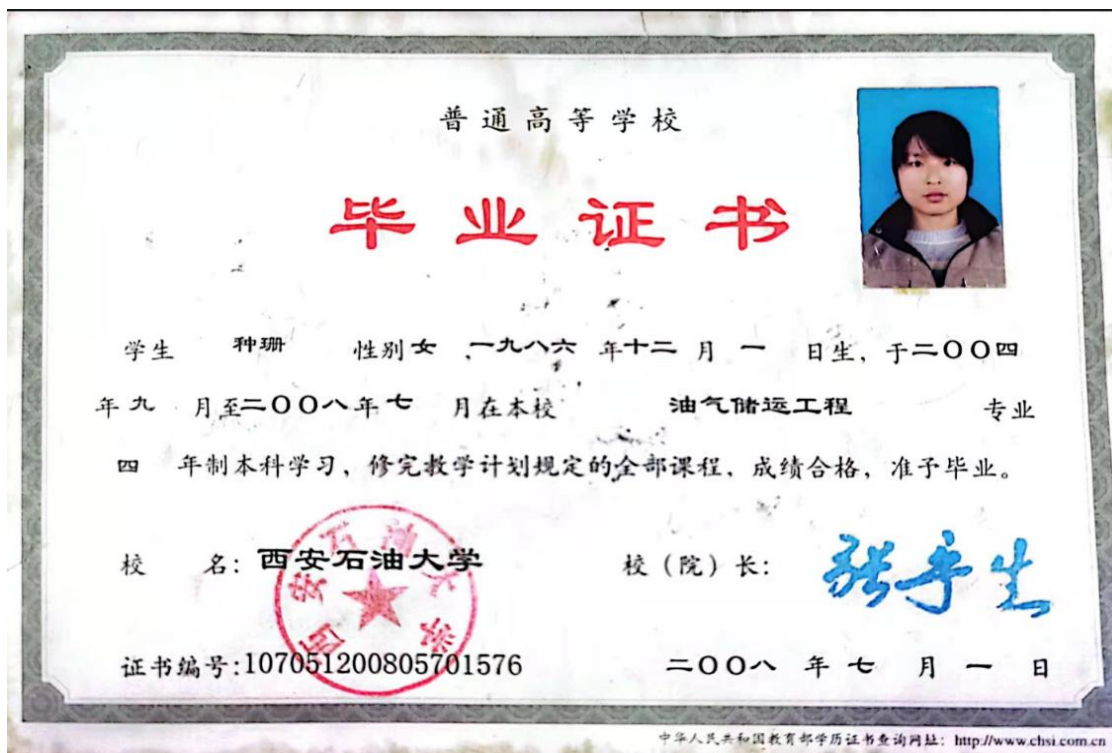 普通高等学校
毕业证书
学生 种珊 性别 女 、一九八六 年 十二 月 一 日生，于二〇〇四
年 九 月至二〇〇八年 七 月在本校 油气储运工程 专业
四 年制本科学习，修完教学计划规定的全部课程，成绩合格，准予毕业。
校 名：西安石油大学 校（院）长：
西安石油大学
证书编号：107051200805701576 二〇〇八 年 七 月 一 日
中华人民共和国教育部学历证书查询网址：http://www.chsi.com.cn